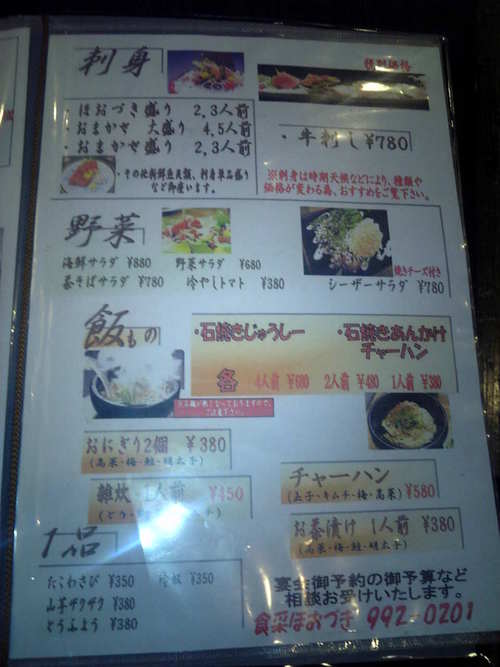 刺身
特別価格
・ほおづき盛り 2,3人前
・おまかせ 大盛り 4,5人前
・おまかせ盛り 2,3人前
・牛刺し ¥780
・その他新鮮魚貝類、刺身単品盛り
など御座います。
※刺身は時期天候などにより、種類や
価格が変わる為、おすすめをご覧下さい。
野菜
海鮮サラダ ¥880
野菜サラダ ¥680
焼きチーズ付き
茶そばサラダ ¥780
冷やしトマト ¥380
シーザーサラダ ¥780
飯もの
・石焼きじゅうしー
・石焼きあんかけ
チャーハン
各 4人前 ¥680 2人前 ¥480 1人前 ¥380
おにぎり2個 ¥380
(高菜・梅・鮭・明太子)
雑炊 1人前 ¥450
チャーハン ¥580
(玉子・キムチ・梅・高菜)
お茶漬け 1人前 ¥380
(高菜・梅・鮭・明太子)
1品
たこわさび ¥350
¥350
山芋ザクザク ¥380
とうふよう ¥380
宴会御予約の御予算など
相談お受けいたします。
食采ほおづき 992-0201